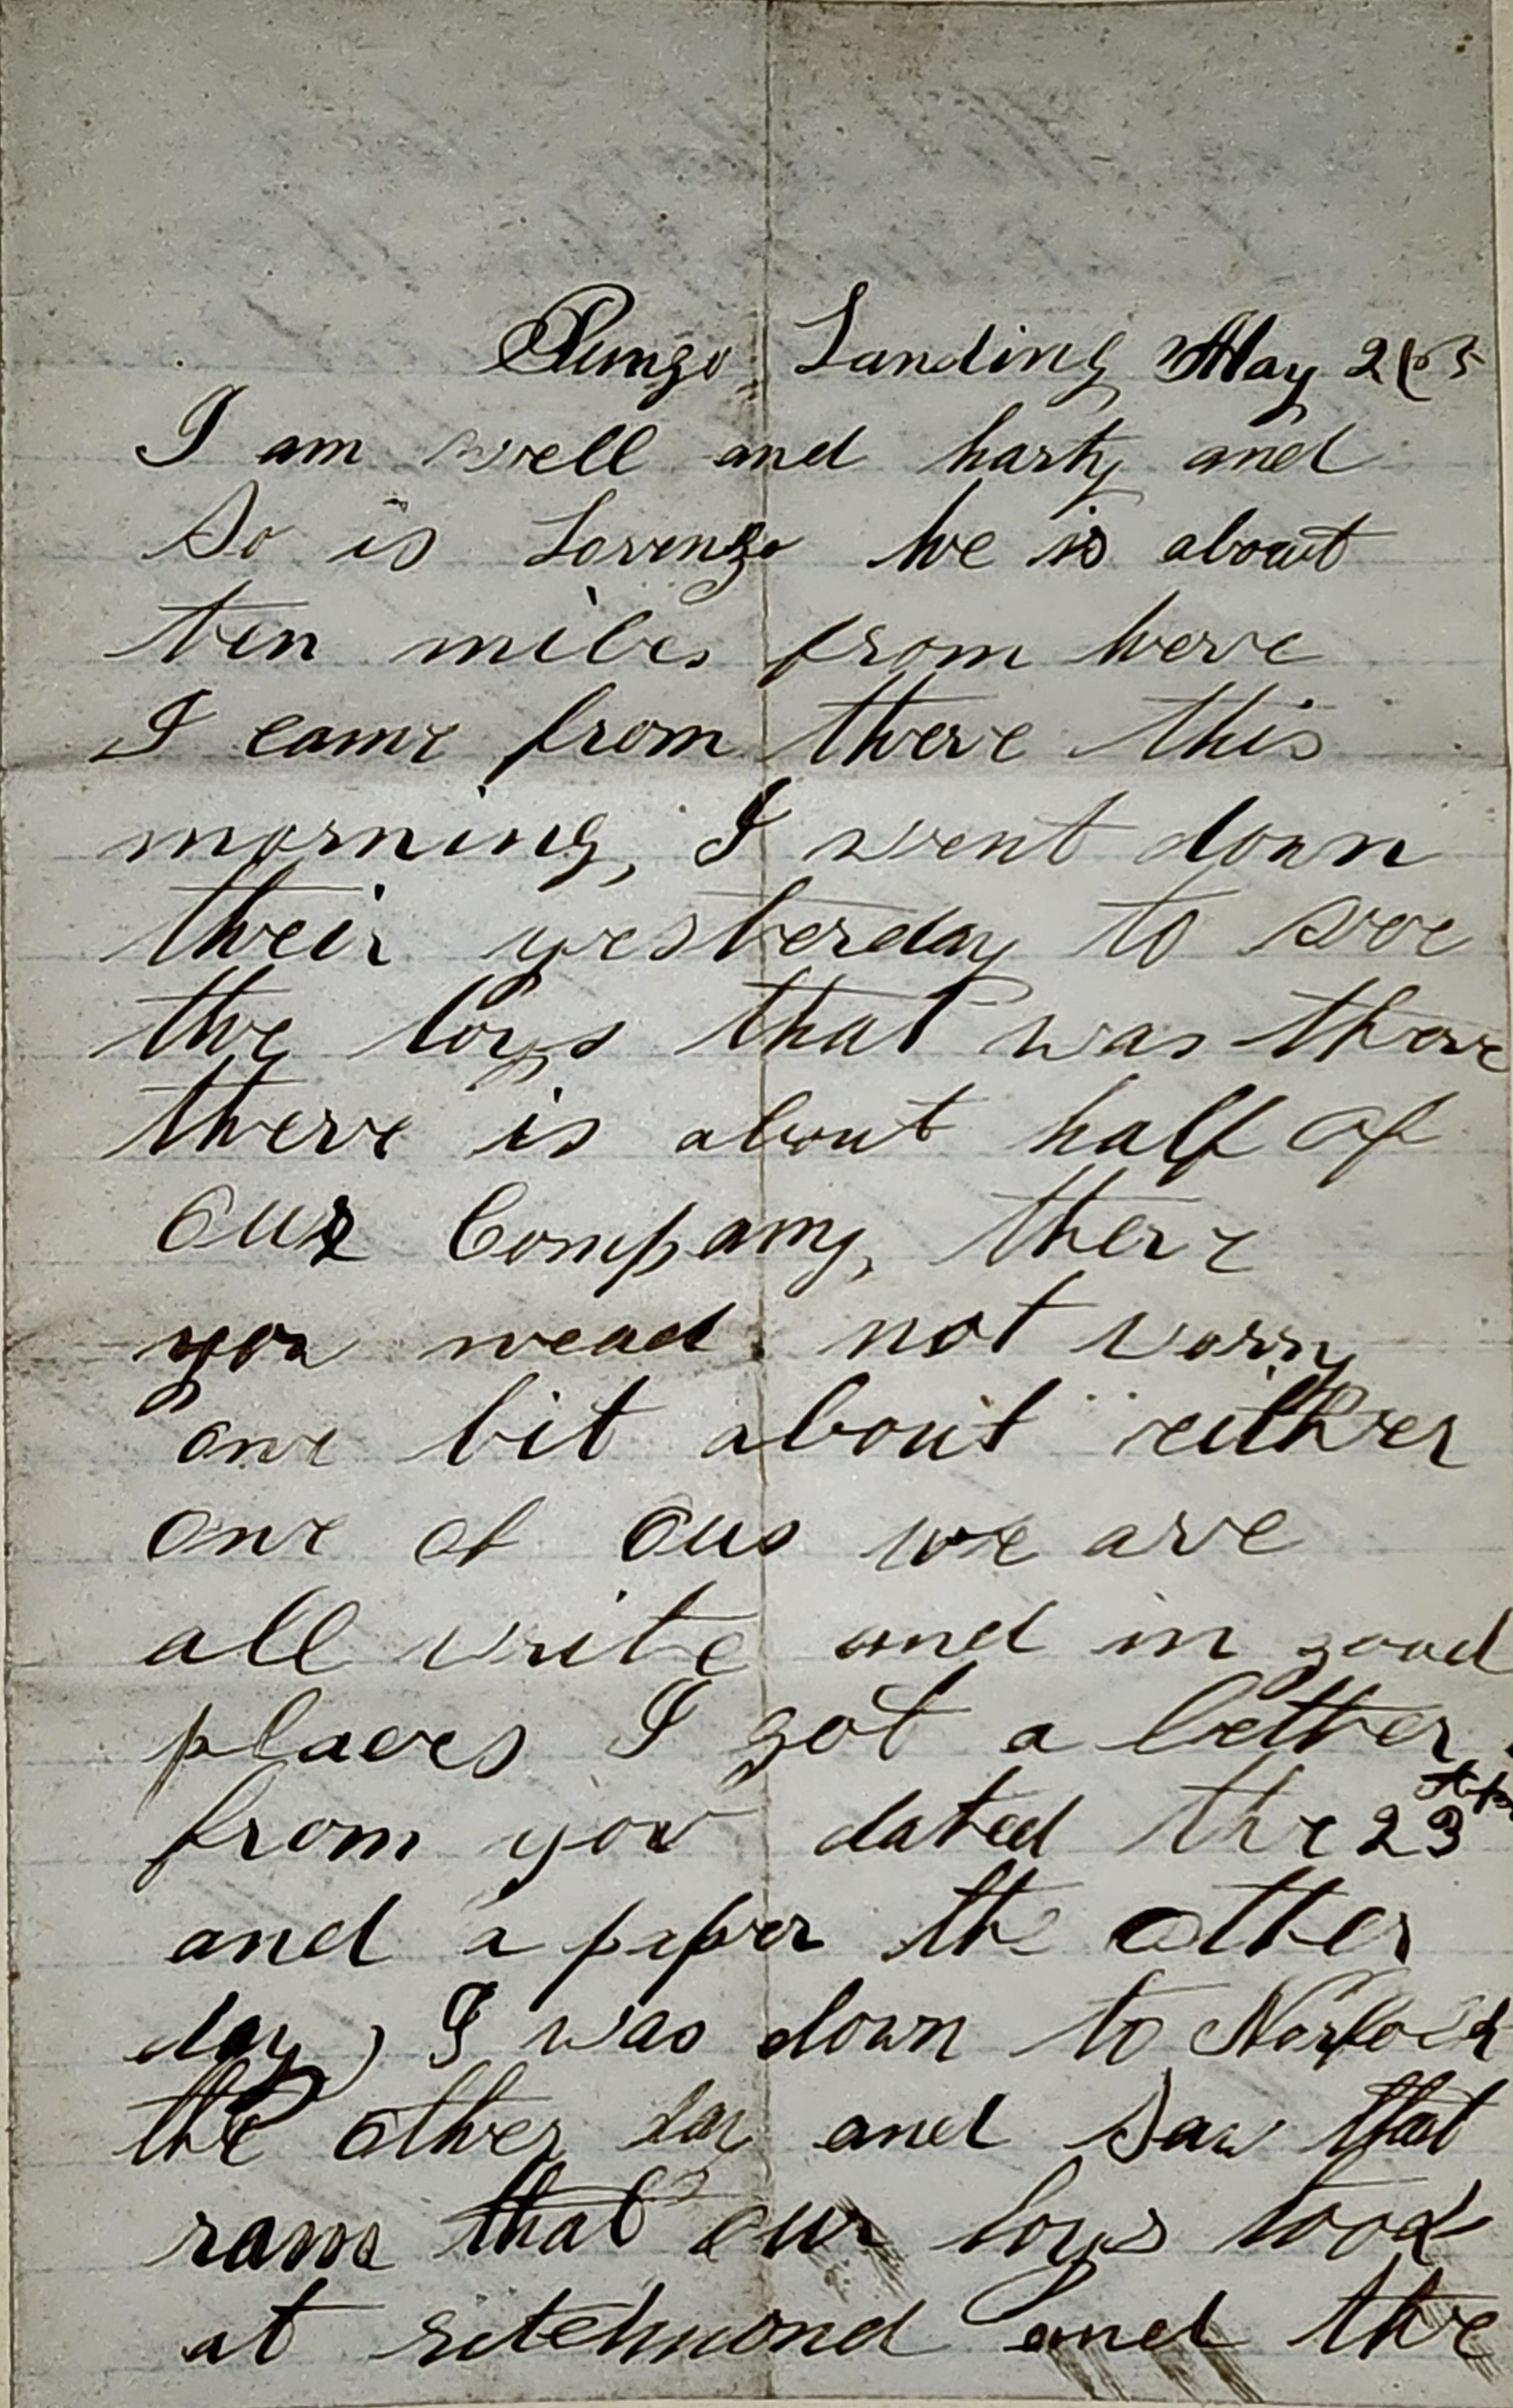 Pungo Landing May 2 65
I am well and harty and
So is Lorenzo he is about
ten miles from here
I came from there this
morning, I went down
their yesterday to see
the boys that was there
there is about half of
our Company, there
you nead not worry
one bit about either
one of ous we are
all write and in good
places I got a letter
from you dated the 23 Ap
and a paper the other
day, I was down to Norfolk
the other day and Saw that
ram that our boys took
at ritchmond and the